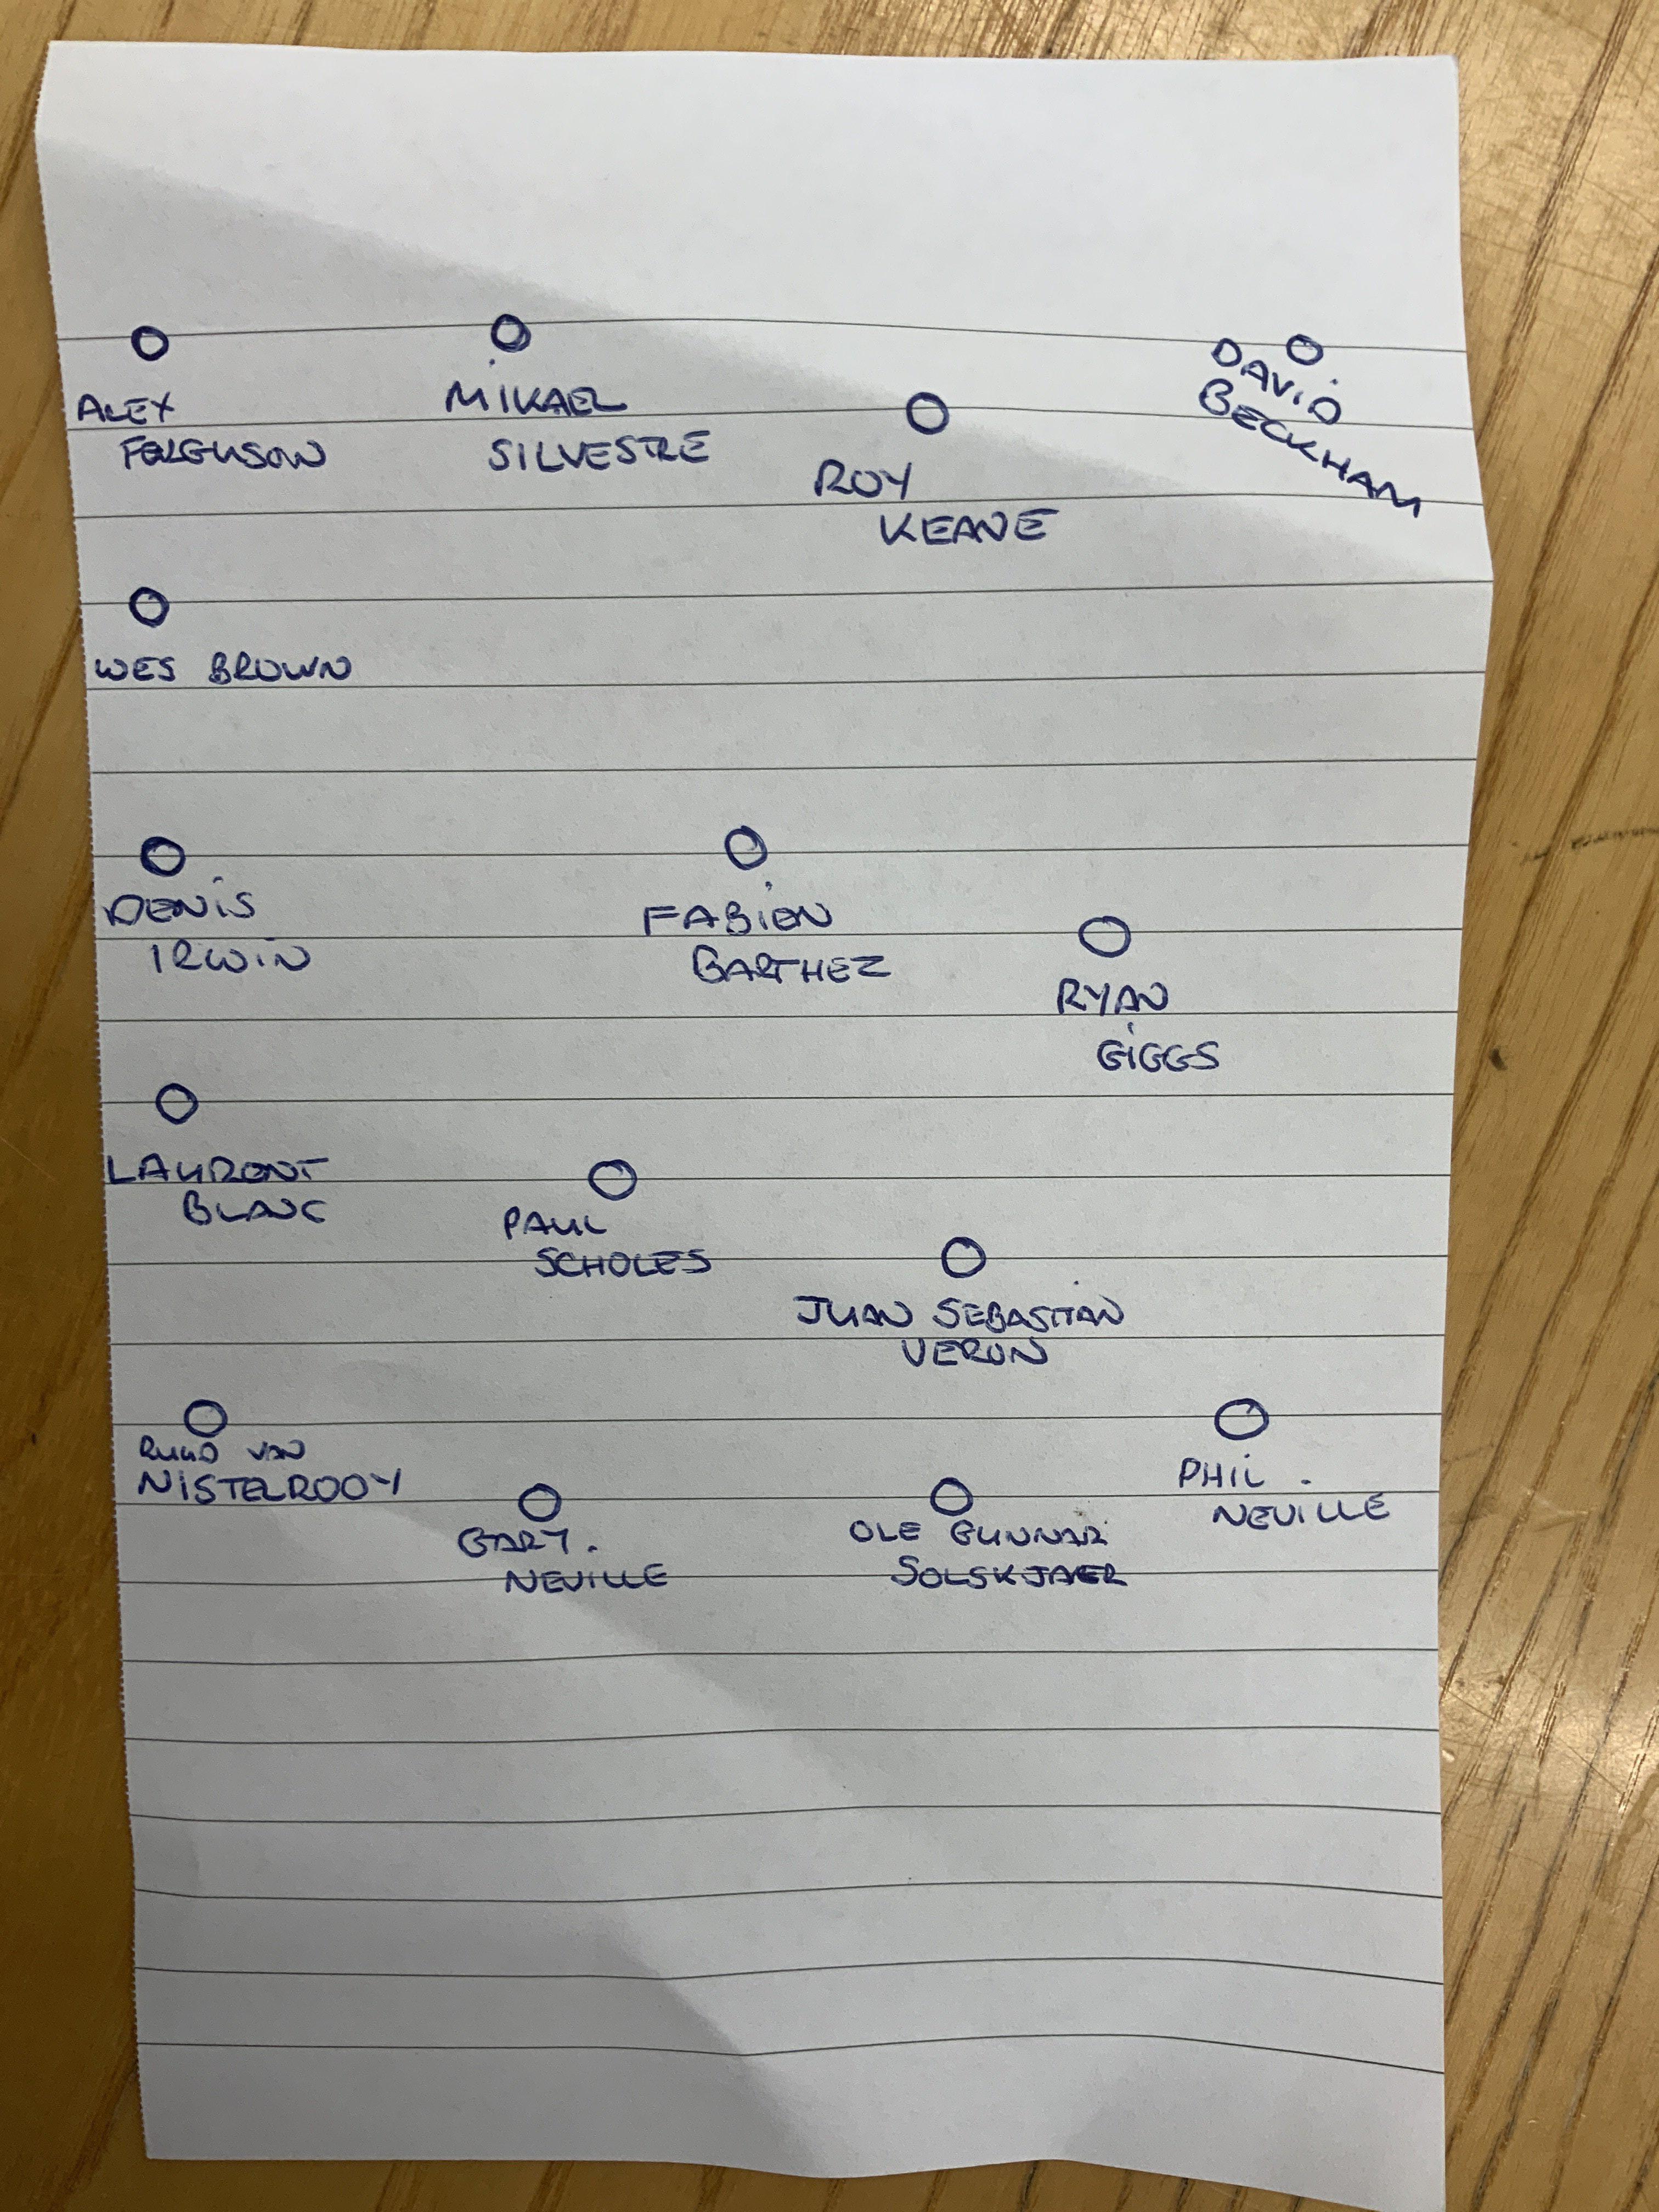 ALEX
FERGUSON
MIKAEL
SILVESTRE
ROY
KEANE
DAVID
BECKHAM
WES BROWN
DENIS
IRWIN
FABIEN
BARTHEZ
RYAN
GIGGS
LAURENT
BLANC
PAUL
SCHOLES
JUAN SEBASTIAN
VERON
RUUD VAN
NISTELROOY
GARY
NEVILLE
OLE GUNNAR
SOLSKJAER
PHIL
NEVILLE